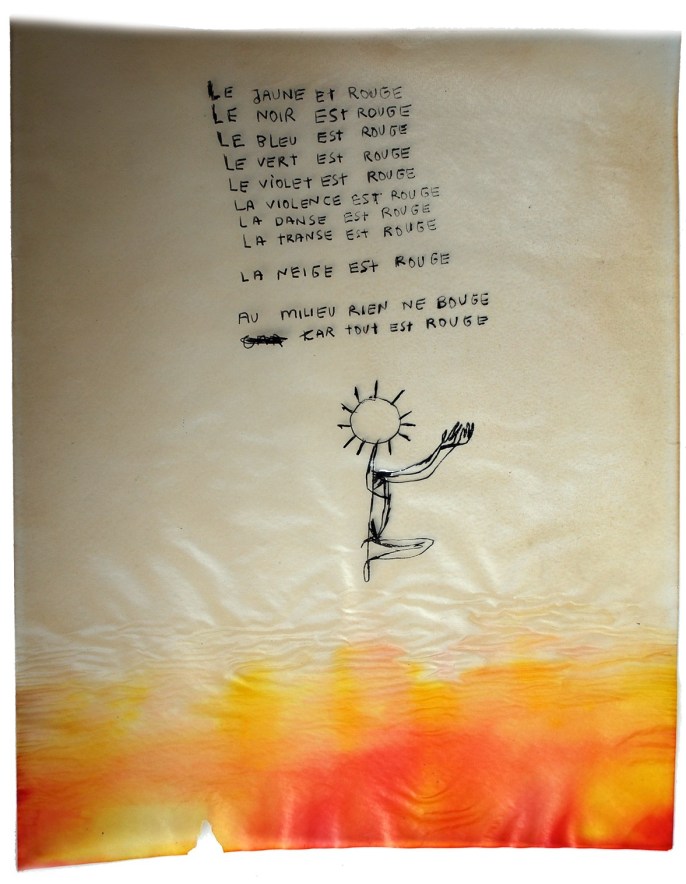 LE JAUNE Et ROUGE
LE NOIR ESt ROUGE
LE BLEU ESt ROUGE
LE VERT ESt ROUGE
LE ViOLEt ESt ROUGE
LA VIOLENCE ESt ROUGE
LA DANSE ESt ROUGE
LA tRANSE ESt ROUGE
LA NEIGE ESt ROUGE
AU MILIEU RIEN NE BOUGE
CAR tOUt ESt ROUGE